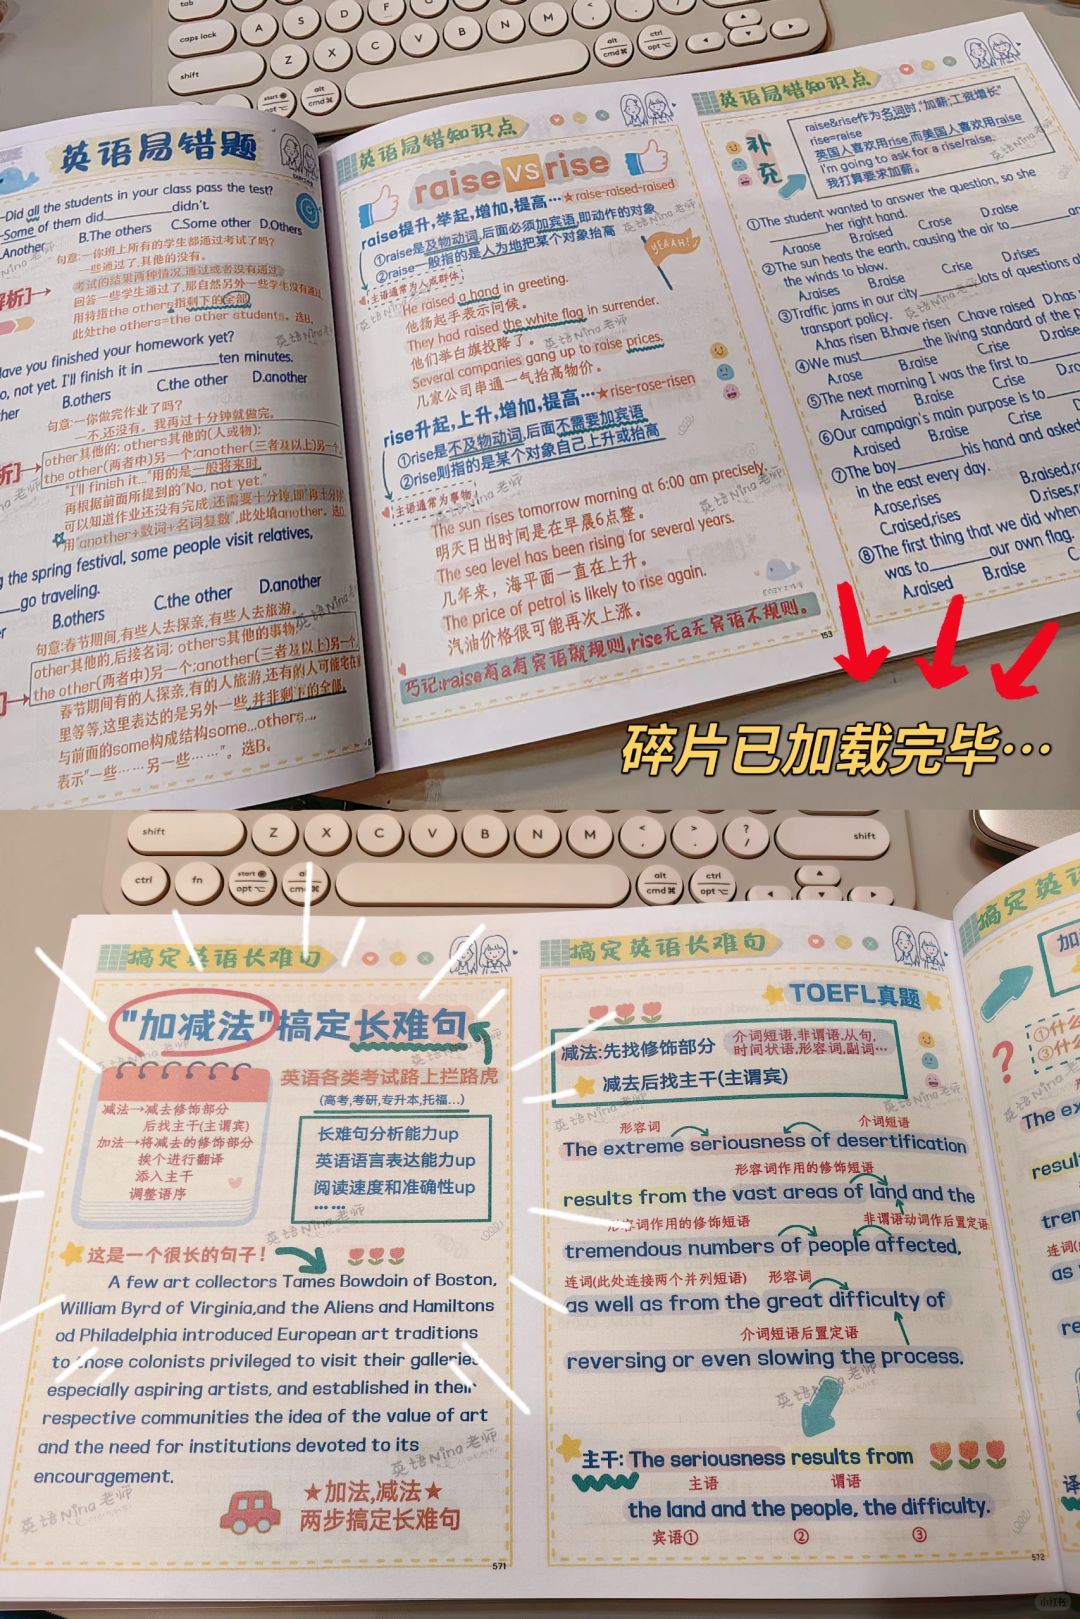 英语易错题
—Did all the students in your class pass the test?
—Some of them did,________didn't.
A.Another B.The others C.Some other D.Others
句意:—你班上所有的学生都通过考试了吗?
—一些通过了,其他的没有。
考试的结果两种情况,通过或者没有通过,
回答一些学生通过了,那自然另外一些学生没有通过
用特指the others指剩下的全部,
此处the others=the other students。选B。
you finished your homework yet?
not yet. I'll finish it in ________ten minutes.
B.others C.the other D.another
句意:—你做完作业了吗?
—不,还没有。我再过十分钟就做完。
other其他的; others其他的(人或物);
the other(两者中)另一个;another(三者及以上)另一个
"I'll finish it..."用的是一般将来时,
再根据前面所提到的"No, not yet."
可以知道作业还没有完成,还需要十分钟,即"再十分钟"
用"another+数词+名词复数",此处填another。选D
the spring festival, some people visit relatives,
go traveling.
B.others C.the other D.another
句意:春节期间,有些人去探亲,有些人去旅游。
other其他的,后接名词; others其他的事物,
the other(两者中)另一个;another(三者及以上)另一个
春节期间有的人探亲,有的人旅游,还有的人可能宅在
里等等,这里表达的是另外一些,并非剩下的全部,
与前面的some构成结构some...others...,
表示"一些……另一些……"。选B。
英语易错知识点
raise VS rise
raise提升,举起,增加,提高…★raise-raised-raised
①raise是及物动词,后面必须加宾语,即动作的对象
②raise一般指的是人为地把某个对象抬高
主语通常为人或群体
YEAAH!
He raised a hand in greeting.
他扬起手表示问候。
They had raised the white flag in surrender.
他们举白旗投降了。
Several companies gang up to raise prices.
几家公司串通一气抬高物价。
rise升起,上升,增加,提高…★rise-rose-risen
①rise是不及物动词,后面不需要加宾语
②rise则指的是某个对象自己上升或抬高
主语通常为事物
The sun rises tomorrow morning at 6:00 am precisely.
明天日出时间是在早晨6点整。
The sea level has been rising for several years.
几年来，海平面一直在上升。
The price of petrol is likely to rise again.
汽油价格很可能再次上涨。
巧记:raise有a有宾语就规则,rise无a无宾语不规则。
153
英语易错知识点
补充
raise&rise作为名词时,"加薪;工资增长"
rise=raise
英国人喜欢用rise,而美国人喜欢用raise
I'm going to ask for a rise/raise.
我打算要求加薪。
①The student wanted to answer the question, so she
________her right hand.
A.raose B.raised C.rose D.raise
②The sun heats the earth, causing the air to
the winds to blow.
A.raises B.raise C.rise D.rises
③Traffic jams in our city ________lots of questions
transport policy.
A.has risen B.have risen C.have raised D.has
④We must________the living standard of the
A.rose B.raise C.rise D.raise
⑤The next morning I was the first to
A.raised B.raise C.rise
⑥Our campaign's main purpose is to
A.raised B.raise C.rise
⑦The boy________his hand and asked
in the east every day.
A.rose,rises B.raised
C.raised,rises D.rises
⑧The first thing that we did when
was to________our own flag.
A.raised B.raise C
碎片已加载完毕…
搞定英语长难句
"加减法"搞定长难句
减法→减去修饰部分
后找主干(主谓宾)
加法→将减去的修饰部分
挨个进行翻译
添入主干
调整语序
英语各类考试路上拦路虎
(高考,考研,专升本,托福...)
长难句分析能力up
英语语言表达能力up
阅读速度和准确性up
……
这是一个很长的句子!
A few art collectors Tames Bowdoin of Boston,
William Byrd of Virginia,and the Aliens and Hamiltons
od Philadelphia introduced European art traditions
to those colonists privileged to visit their galleries
especially aspiring artists, and established in their
respective communities the idea of the value of art
and the need for institutions devoted to its
encouragement.
★加法,减法★
两步搞定长难句
英语Nina老师
571
搞定英语长难句
TOEFL真题
减法:先找修饰部分
介词短语,非谓语,从句,
时间状语,形容词,副词…
减去后找主干(主谓宾)
形容词 介词短语
The extreme seriousness of desertification
形容词作用的修饰短语
results from the vast areas of land and the
形容词作用的修饰短语 非谓语动词作后置定语
tremendous numbers of people affected,
连词(此处连接两个并列短语) 形容词
as well as from the great difficulty of
介词短语后置定语
reversing or even slowing the process.
主干: The seriousness results from
主语 谓语
the land and the people, the difficulty.
宾语① ② ③
572
搞定英语
小红书